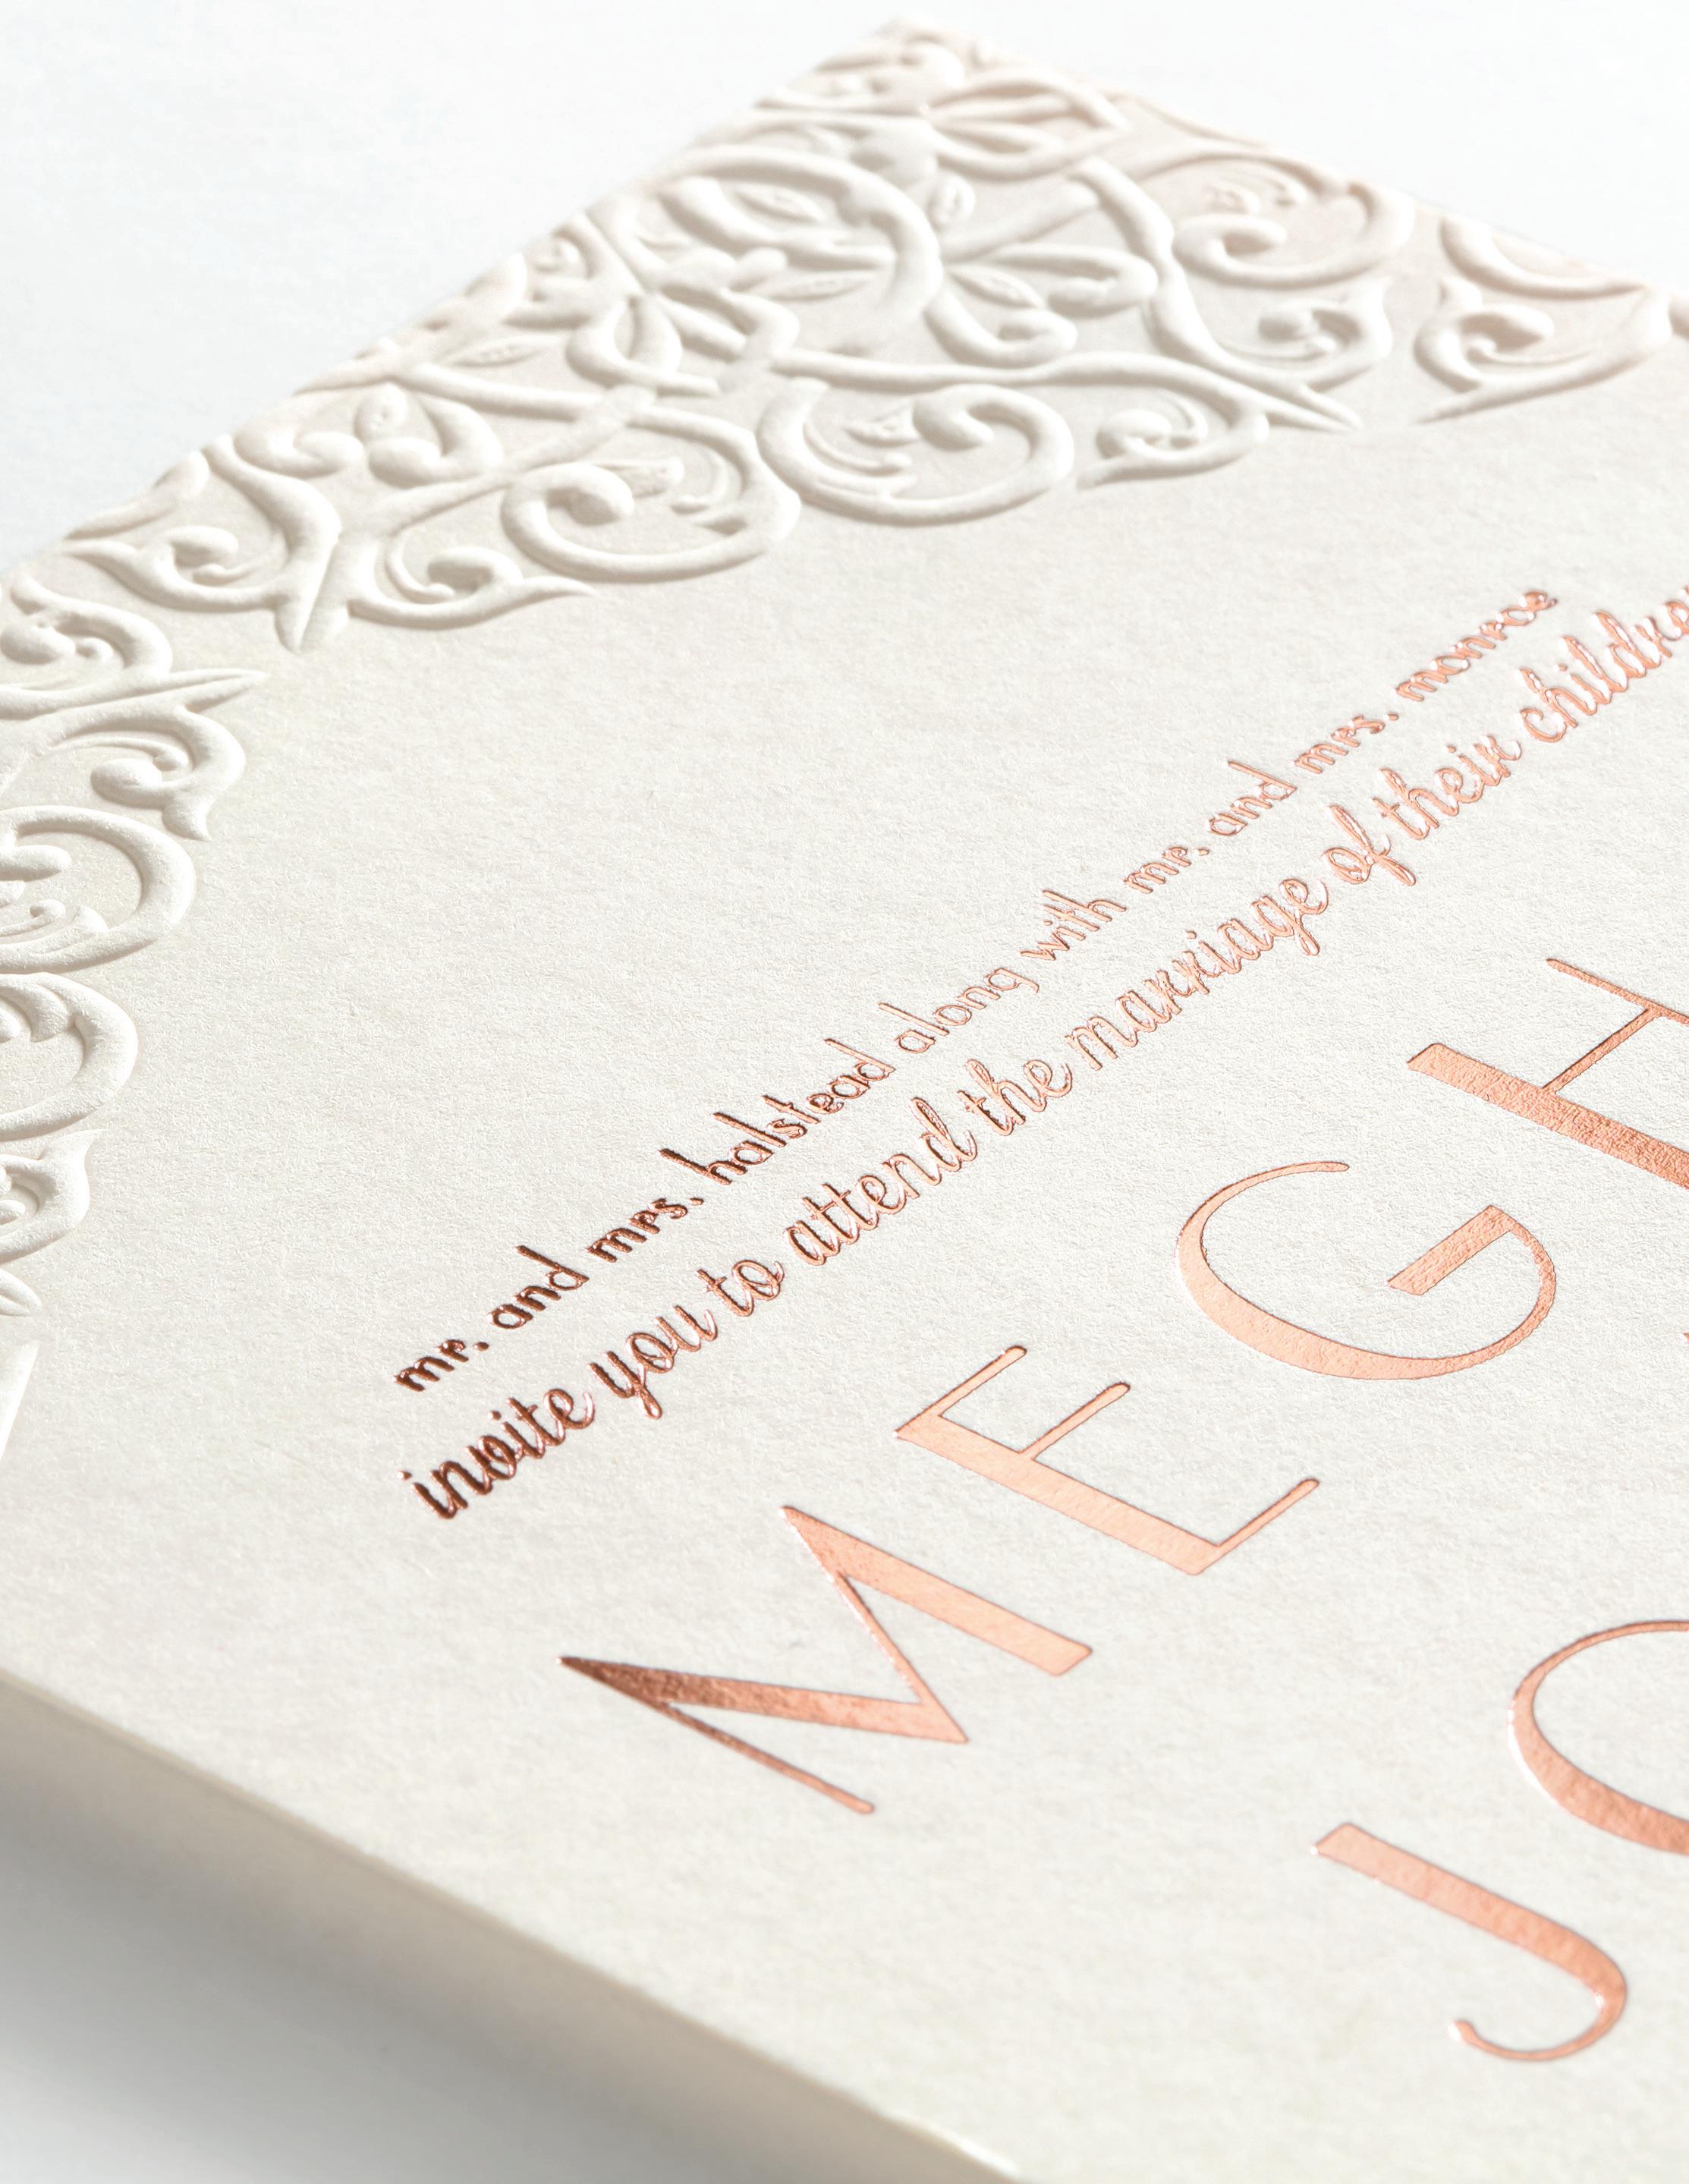 mr. and mrs. halstead along with mr. and mrs. monroe
invite you to attend the marriage of their children
MEGH
JO